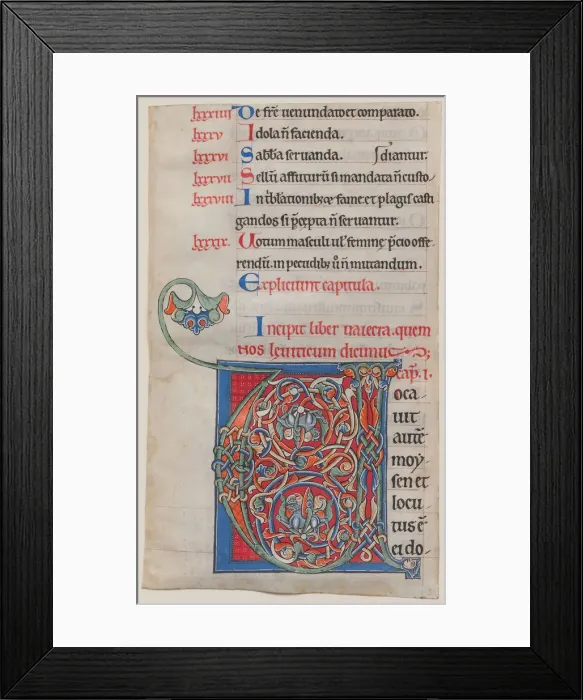 lxxxiiii De fr̄e uenundato et comparato.
lxxxv Idola n̄ facienda.
lxxxvi Sabb̄a seruanda. ʃdiantur.
lxxxvii Sell̄n affuturū si mandata n̄ custo
lxxxviii In tribłationibꝫ fame et plagis casti
gandos si p̄cepta n̄ seruantur.
lxxxix. Uotum masculi uł femine p̄cio offe
rendū. in pecudibꝫ ū n̄ mutandum.
Expliciunt capitula.
Incipit liber uaiecra. quem
nos leuiticum dicimus;
cap̄. i.
Uoca
uit
autē
moy
sen et
locu
tus ē
ei do